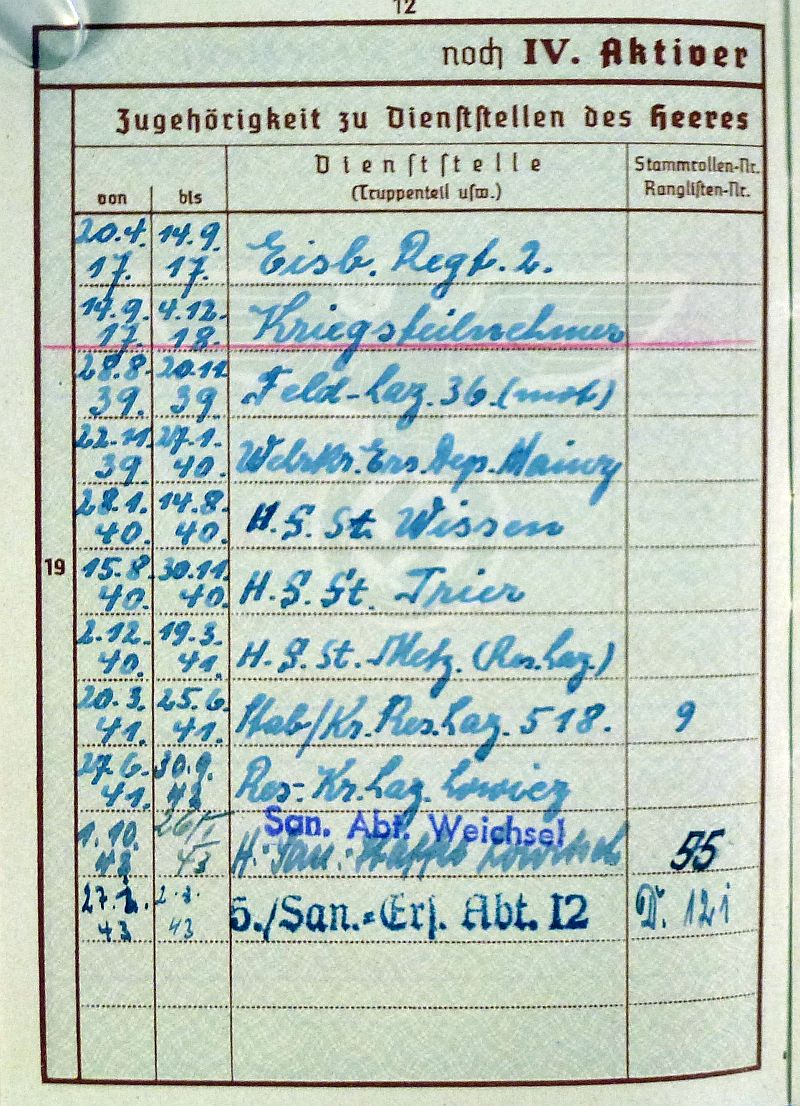 12
noch IV. Aktiver
Zugehörigkeit zu Dienststellen des Heeres
von bis Dienststelle (Truppenteil usw.) Stammrollen-Nr. Ranglisten-Nr.
20.4. 17. 14.9. 17. Eisb. Regt. 2.
14.9. 17. 4.12. 18. Kriegsteilnehmer
28.8. 39. 20.11. 39. Feld-Laz. 36. (mot)
22.11. 39. 27.1. 40. Wehrkr. Ers. Dep. Mainz
28.1. 40. 14.8. 40. H. S. St. Wissen
19
15.8. 40. 30.11. 40. H. S. St. Trier
2.12. 40. 19.3. 41. H. S. St. Metz. (Res. Laz.)
20.3. 41. 25.6. 41. Stab/Kr. Res. Laz. 518. 9
27.6. 41. 30.9. 42 Res.-Kr. Laz. Lowicz
San. Abt. Weichsel
1.10. 42 26/I 43 H.-San.-Staffel Lowitsch 55
27.1. 43 43 5./San.=Ers. Abt. 12 D. 121